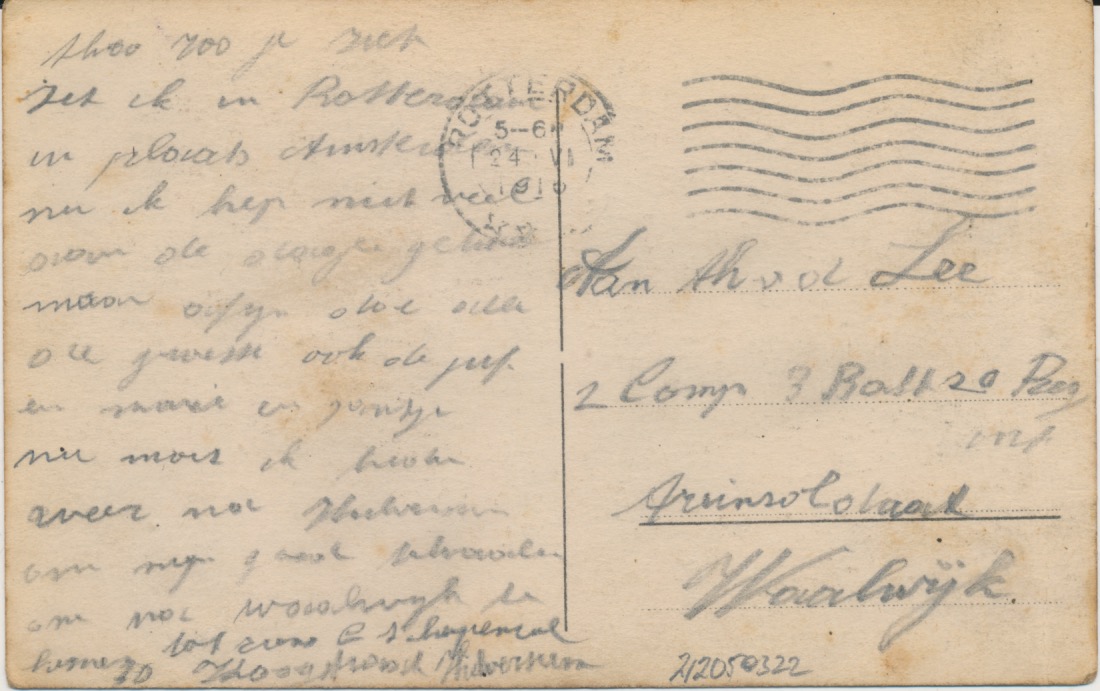 theo zoo je ziet
zit ik in Rotterdam
in plaats Amsterdam
nu ik hep niet veel
maar ofijn doe alle
de groete ook de juf
en marie en jontje
nu moet ik
weer na Hilversum
om mijn te
om na waalwijk te
komen tot ziens C Schapensal
20 Hoogstraat Hilversum
ROTTERDAM
5-6
24 VI
191
Aan Th v d Lee
2 Comp 3 Batt 20 Reg
inf
treinsoldaat
Waalwijk.
212050322